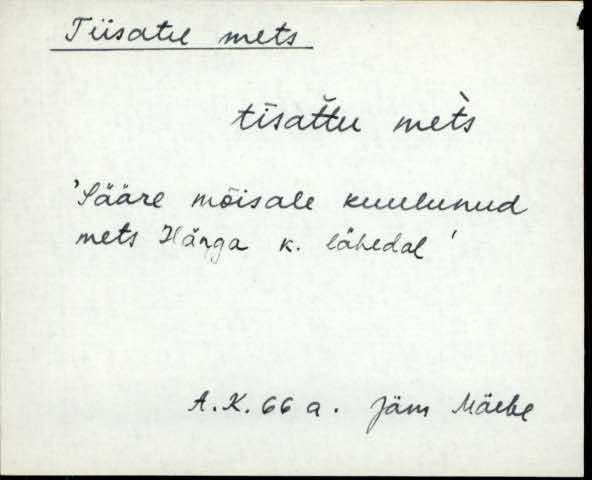 Tiisatu mets
tīsat̆t̆u met̀s
'Sääre mõisale kuulunud
mets Hänga k. lähedal'
A.K. 66 a. Jäm Mäebe